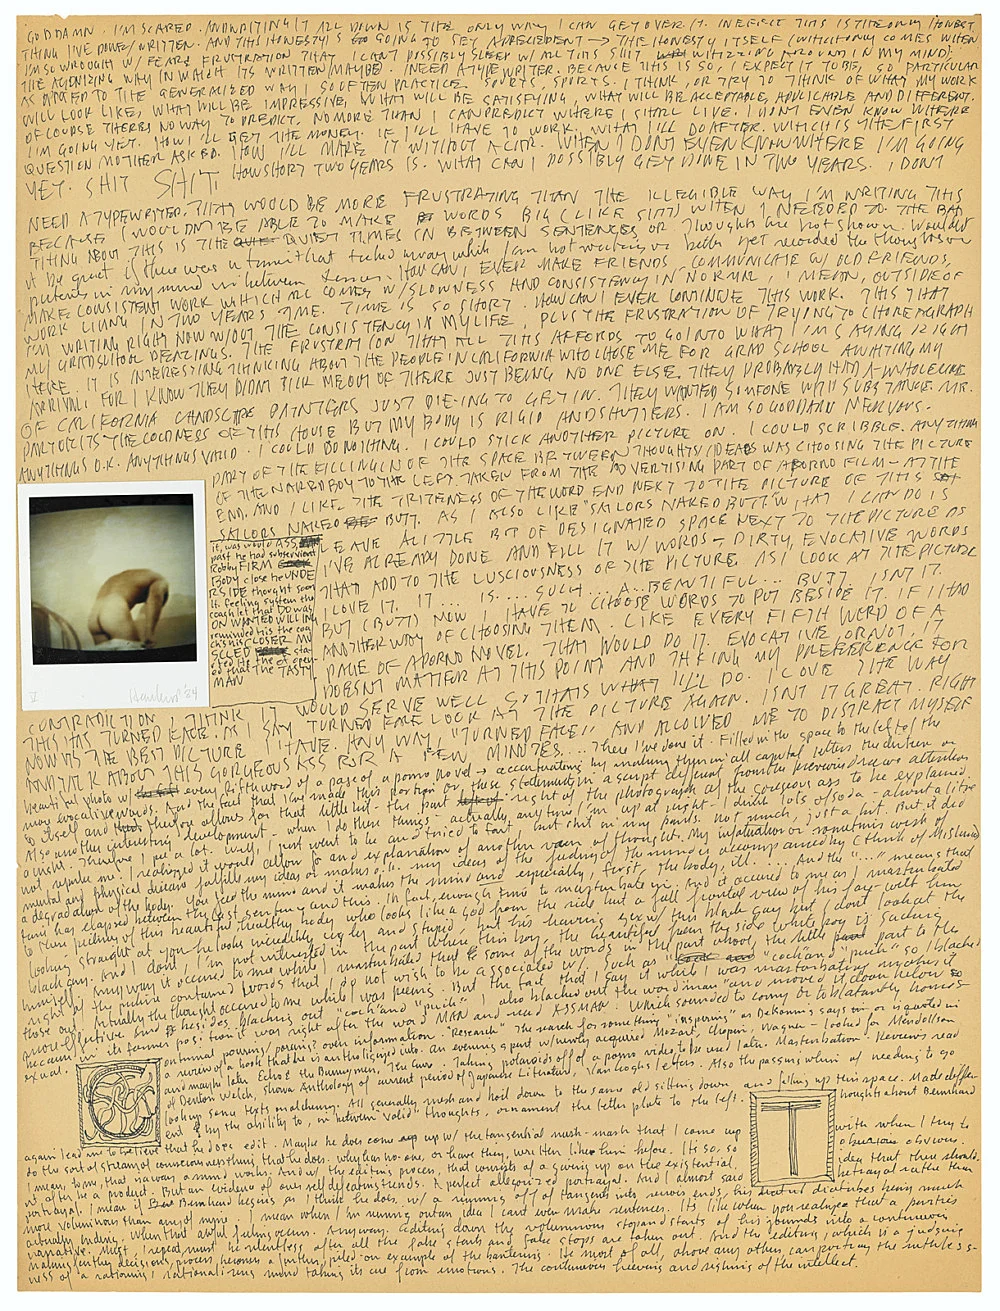 GODDAMN. I'M SCARED. AND WRITING IT ALL DOWN IS THE ONLY WAY I CAN GET OVER IT. IN EFFECT THIS IS THE ONLY HONEST
THING I'VE DONE/WRITTEN. AND THIS HONESTY IS GOING TO SET A PRECEDENT → THE HONESTY ITSELF (WHICH ONLY COMES WHEN
I'M SO WROUGHT W/ FEAR & FRUSTRATION THAT I CAN'T POSSIBLY SLEEP W/ ALL THIS SHIT WHIZZING AROUND IN MY MIND).
THE AGONIZING WAY IN WHICH ITS WRITTEN (MAYBE). I NEED A TYPEWRITER. BECAUSE THIS IS SO, I EXPECT IT TO BE, SO PARTICULAR
AS OPPOSED TO THE GENERALIZED WAY I SO OFTEN PRACTICE. SPURTS, SPURTS. I THINK, OR TRY TO THINK OF WHAT MY WORK
WILL LOOK LIKE, WHAT WILL BE IMPRESSIVE, WHAT WILL BE SATISFYING, WHAT WILL BE ACCEPTABLE, APPLICABLE AND DIFFERENT.
OF COURSE THERES NO WAY TO PREDICT. NO MORE THAN I CAN PREDICT WHERE I SHALL LIVE. I DON'T EVEN KNOW WHERE
I'M GOING YET. HOW I'LL GET THE MONEY. IF I'LL HAVE TO WORK. WHAT I'LL DO AFTER. WHICH IS THE FIRST
QUESTION MOTHER ASKED. HOW I'LL MAKE IT WITHOUT A CAR. WHEN I DON'T EVEN KNOW WHERE I'M GOING
YET. SHIT SHIT. HOW SHORT TWO YEARS IS. WHAT CAN I POSSIBLY GET DONE IN TWO YEARS. I DON'T
NEED A TYPEWRITER. THAT WOULD BE MORE FRUSTRATING THAN THE ILLEGIBLE WAY I'M WRITING THIS
BECAUSE I WOULDN'T BE ABLE TO MAKE WORDS BIG (LIKE SHIT) WHEN I NEEDED TO. THE BAD
THING ABOUT THIS IS THE QUIET TIMES IN BETWEEN SENTENCES OR Thoughts are not shown. Wouldn't
it be great if there was a timer that ticked away while I am not writing or better yet recorded the thoughts or
pictures in my mind in between HOW CAN I EVER MAKE FRIENDS, COMMUNICATE W/ OLD FRIENDS,
MAKE CONSISTENT WORK WHICH ALL COMES W/ SLOWNESS AND CONSISTENCY IN NORMAL, I MEAN, OUTSIDE OF
WORK LIVING IN TWO YEARS TIME. TIME IS SO SHORT. HOW CAN I EVER CONTINUE THIS WORK. THIS THAT
I'M WRITING RIGHT NOW W/OUT THE CONSISTENCY IN MY LIFE, PLUS THE FRUSTRATION OF TRYING TO CHOREAGRAPH
MY GRADSCHOOL DEALINGS. THE FRUSTRATION THAT ALL THIS AFFORDS TO GO INTO WHAT I'M SAYING RIGHT
HERE. IT IS INTERESTING THINKING ABOUT THE PEOPLE IN CALIFORNIA WHO CHOSE ME FOR GRAD SCHOOL AWAITING MY
ARRIVAL! FOR I KNOW THEY DIDN'T PICK ME OUT OF THERE JUST BEING NO ONE ELSE. THEY PROBABLY HAD A WHOLE LINE
OF CALIFORNIA LANDSCAPE PAINTERS JUST DIE-ING TO GET IN. THEY WANTED SOMEONE WITH SUBSTANCE. ME.
PARTOFIT IS THE COLDNESS OF THIS HOUSE BUT MY BODY IS RIGID AND SHUTTERS. I AM SO GODDAMN NERVOUS.
ANYTHINGS O.K. ANYTHINGS VALID. I COULD DO NOTHING. I COULD STICK ANOTHER PICTURE ON. I COULD SCRIBBLE. ANYTHING
PART OF THE FILLING IN OF THE SPACE BETWEEN THOUGHTS/IDEAS WAS CHOOSING THE PICTURE
OF THE NAKED BOY TO THE LEFT. TAKEN FROM THE ADVERTISING PART OF A PORNO FILM - AT THE
END. AND I LIKE THE TRITENESS OF THE WORD END NEXT TO THE PICTURE OF THIS
SAILORS NAKED BUTT. AS I ALSO LIKE "SAILORS NAKED BUTT". WHAT I CAN DO IS
LEAVE A LITTLE BIT OF DESIGNATED SPACE NEXT TO THE PICTURE AS
I'VE ALREADY DONE AND FILL IT W/ WORDS - DIRTY, EVOCATIVE WORDS
THAT ADD TO THE LUSCIOUSNESS OF THE PICTURE. AS I LOOK AT THE PICTURE
I LOVE IT. IT ... IS .... SUCH ... A .. BEAUTIFUL ... BUTT. ISN'T IT.
BUT (BUTT) NOW I HAVE TO CHOOSE WORDS TO PUT BESIDE IT. IF I HAD
ANOTHER WAY OF CHOOSING THEM. LIKE EVERY FIFTH WORD OF A
PAGE OF A PORNO NOVEL. THAT WOULD DO IT. EVOCATIVE OR NOT, IT
DOESN'T MATTER AT THIS POINT AND TAKING MY PREFERENCE FOR
CONTRADICTION, I THINK IT WOULD SERVE WELL SO THATS WHAT I'LL DO. I LOVE THE WAY
it, was would ASS,
past he had subservient
Robby FIRM
BODY close he UNDE
RSIDE thought soon
it. feeling system the
coach let that DO was
ON WANTED WILLING
reminded his the coa
chs nic CLOSER MU
SCLED sta
red
so that the TASTY
MAN
V '84
THIS HAS TURNED FACE. AS I SAY TURNED FACE LOOK AT THE PICTURE AGAIN. ISN'T IT GREAT. RIGHT
NOW ITS THE BEST PICTURE I HAVE. ANY WAY, "TURNED FACE" AND ALLOWED ME TO DISTRACT MYSELF
AND TALK ABOUT THIS GORGEOUS ASS FOR A FEW MINUTES.... There I've done it. Filled in the space to the left of the
beautiful photo w/ every fifth word of a page of a porno novel → accentuating by making them in all capital letters the dirtier or
more evocative words. And the fact that I've made this portion or, these statements in a script different from the previous draws attention
to itself and allows for that little bit - this part right of the photograph of the gorgeous ass to be explained.
Also another interesting development - when I do these things - actually, anytime I'm up at night - I drink lots of soda - about a litre
a night. Therefore I pee a lot. Well, I just went to pee and tried to fart, but shit in my pants. Not much, just a bit. But it did
not repulse me. I realized it would allow for and explanation of another vain of thought. My infatuation or sometimes wish of
mental and physical disease fulfills my ideas or makes o.k. my ideas of the fading of the mind accompanied by (think of Mishima)
a degradation of the body. You fed the mind and it makes the mind and especially, first, the body, ill..... And the "...." means that
time has elapsed between the last sentence and this. In fact, enough time to masturbate in. And it occured to me as I masturbated
to this picture of this beautiful, healthy body who looks like a god from the side but a full frontal view of his face - with him
looking straight at you he looks incredibly ugly and stupid, but his having sex w/ this black guy but I dont look at the
black guy. And I don't, I'm not interested in the part where this boy, the beautiful from the side white boy is sucking
himself. Anyway it occured to me while I masturbated that some of the words in the the little part to the
right of the picture contained words that I do not wish to be associated w/. Such as "cock and puck" so I blacked
those out. Actually the thought occured to me while I was peeing. But the fact that I say it while I was masturbating makes it
more effective. And besides blacking out "cock and "puck" I also blacked out the word man" and moved it down below
because in its former position it was right after the word MAN and read ASSMAN. Which sounded to corny or to blatantly homos
exual. Continual pouring/poring? over information. "Research" The search for something "inspiring" as DeKooning says in or is quoted in
a review of a book that he is anthologized into. An evening spent w/ newly acquired Mozart, Chopin, Wagner - looked for Mendollson
and maybe later Echo & the Bunnymen, The Cure. Taking polaroids off of a porno video to be used later. Masturbation. Reviews read
of Denton Welch, Showa Anthology of current period of Japanese Literature, Van Goghs letters. Also the passing whim of needing to go
look up some texts on alchemy. All generally mesh and boil down to the same old sitting down and filling up this space. Made differ-
ent by the ability to, in between "valid" thoughts, ornament the letter plate to the left. Thoughts about Bernhard
again lead me to believe that he does edit. Maybe he does come up w/ the tangential mush-mash that I come up with when I try to
do the sort of stream of consciousness thing that he does. Why has no-one, or have they, written like him before. It's so, so obvious.
I mean, to me, that is way a mind works. And w/ the editing process, that consists of a giving up on the existential, idea that there should
or, after he a product. But an evidence of ones self defeating trends. A perfect allegorized portrayal. And I almost said betrayal rather than
portrayal. I mean if Bernhard begins as I think he does, w/ a running off of tangents into nervous ends, his diatribes being much
more voluminous than any of mine. I mean when I'm running out an idea I can't even make sentences. It's like when you realize that a parties
actually ending. When that awful feeling occurs. Anyway. Editing down the voluminous stop and starts of his journals into a continuous
narrative. Must, I repeat must be relentless after all the false starts and false stops are taken out. And the editing, which is a judging
making/on the decisions, process becomes a further filed-on example of the bantering. He most of all, above any others, can portray the ruthless-
ness of a rationing/rationalizing mind taking its cue from emotions. The continuous heaving and sighing of the intellect.